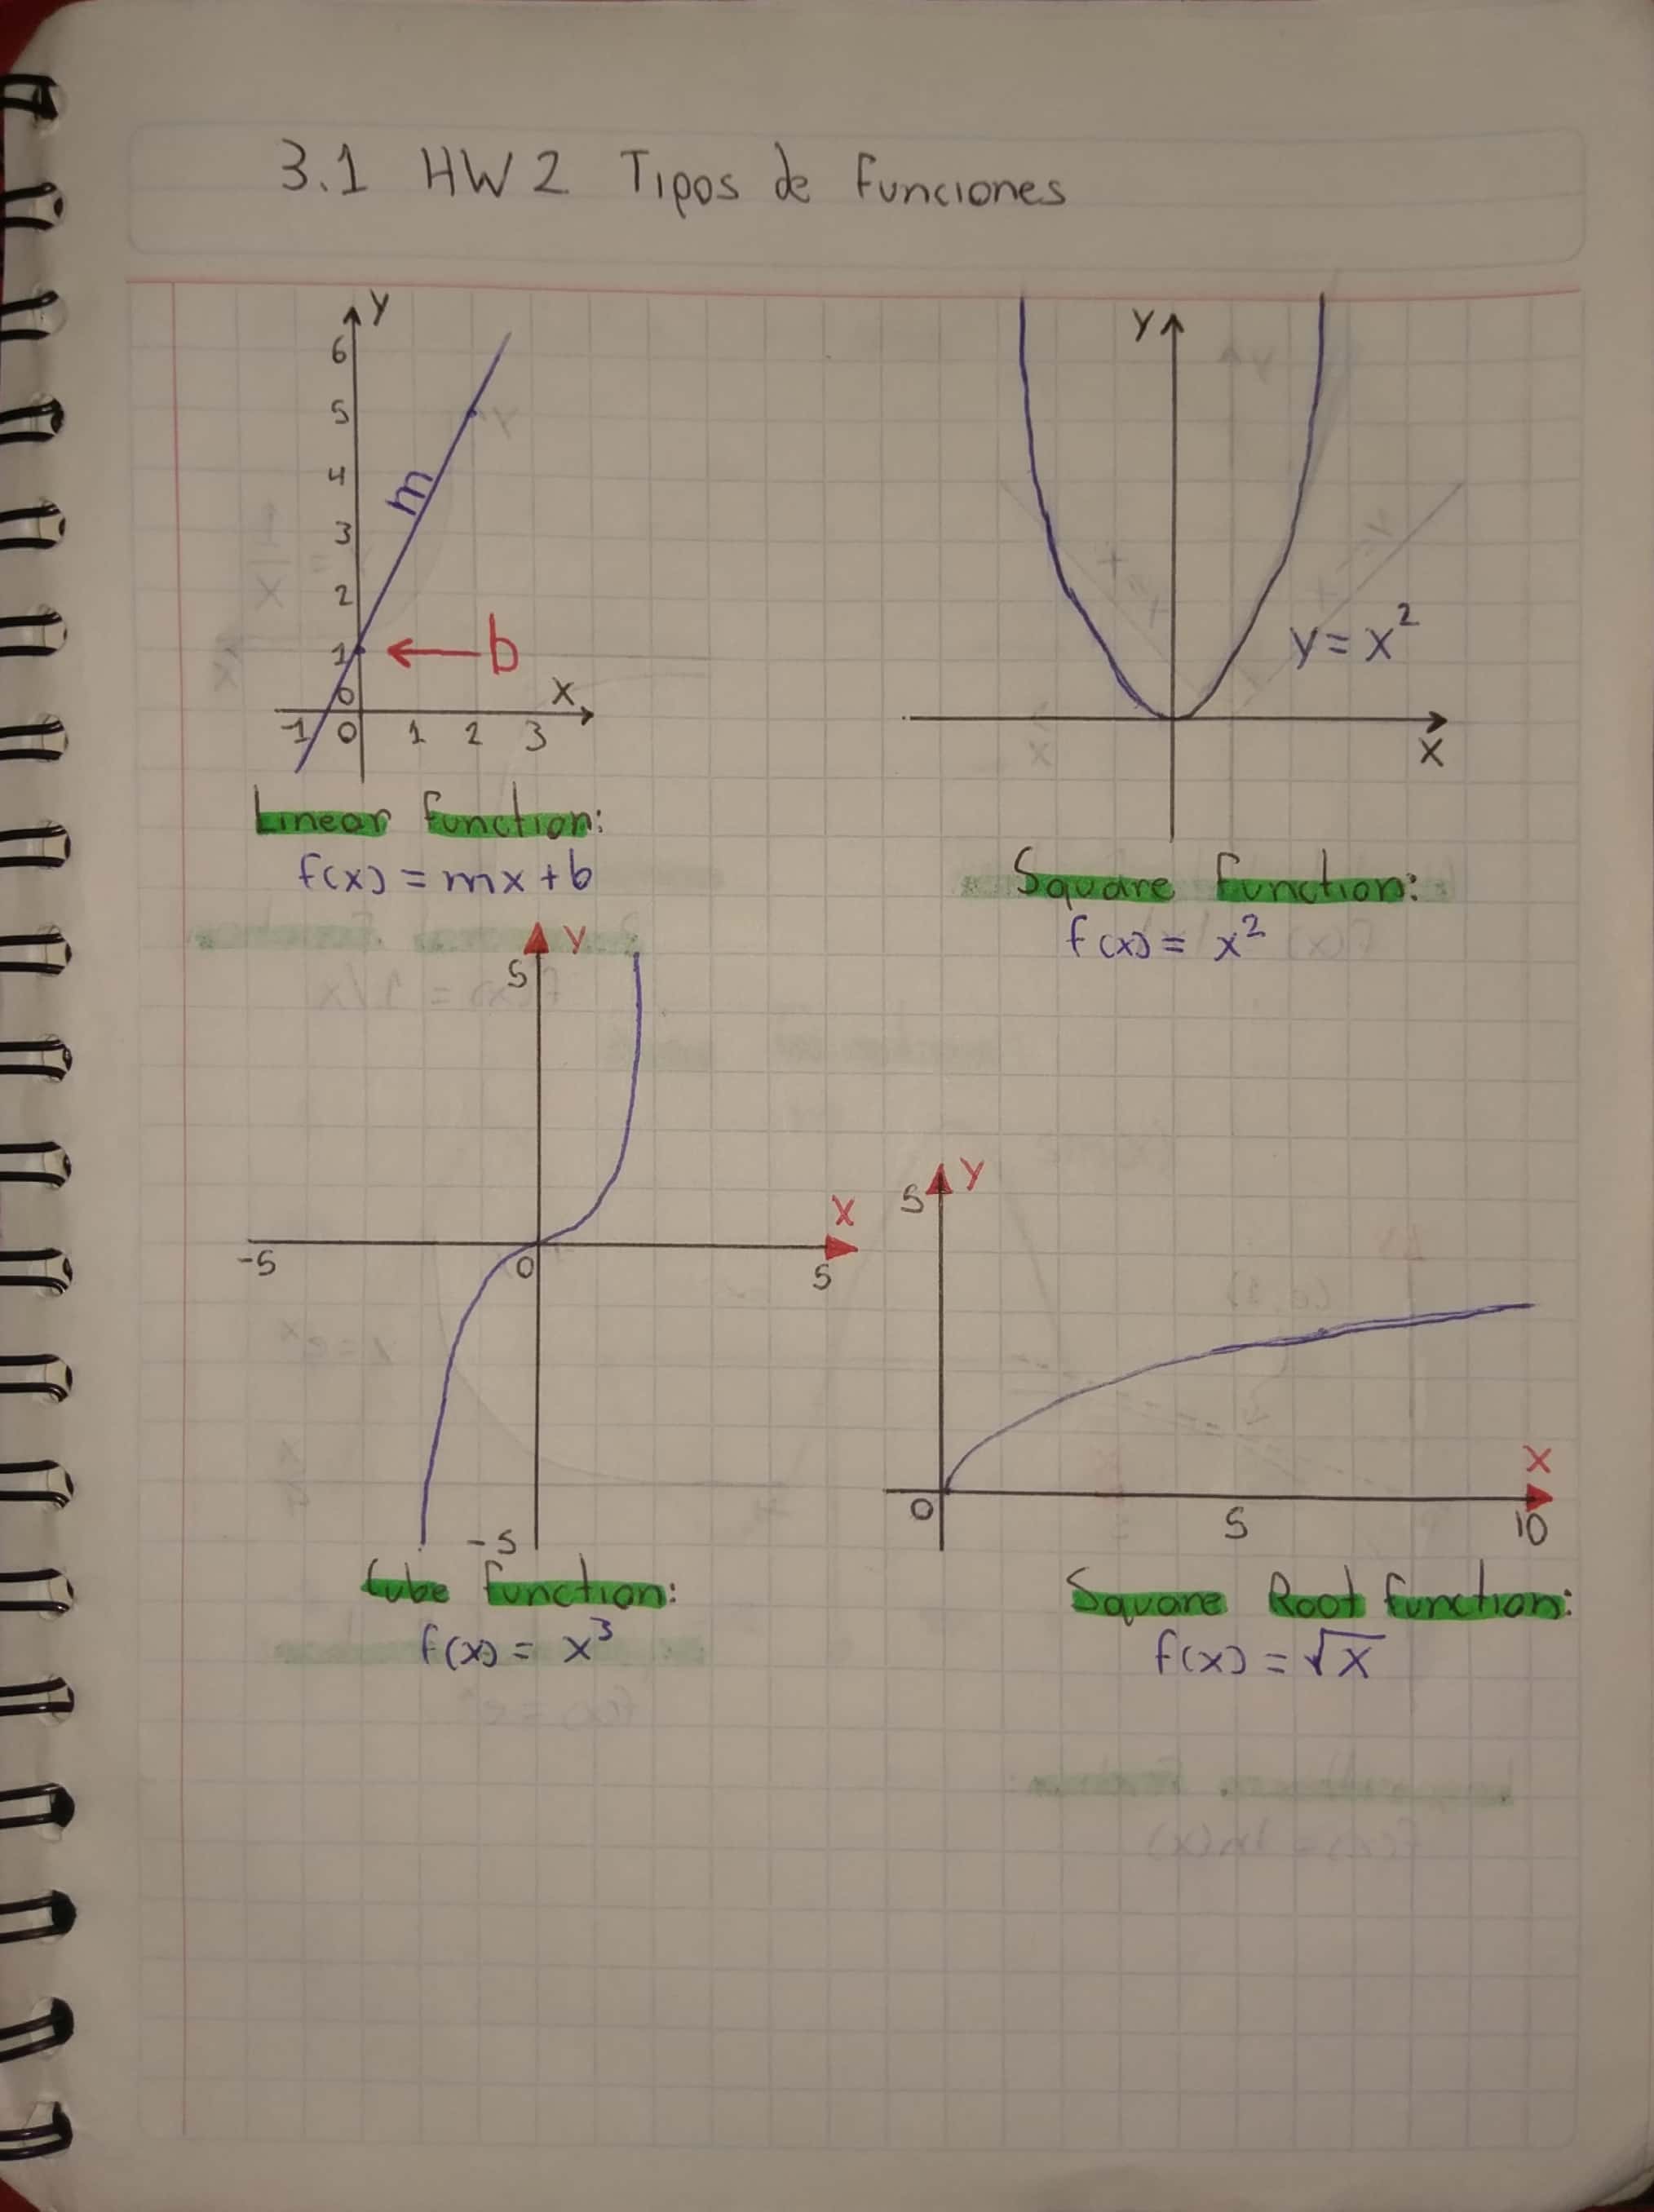 3.1 HW2 Tipos de funciones
Y
6
5
4
m
3
2
1
b
0
X
-1 0 1 2 3
Linear function:
f(x) = mx+b
Y
y = x²
X
Square function:
f(x) = x²
Y
5
X
-5 0 5
-5
Cube function:
f(x) = x³
Y
5
X
0 5 10
Square Root function:
f(x) = √x